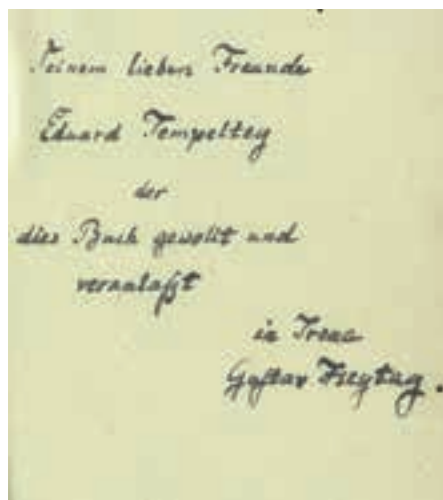 Seinem lieben Freunde
Eduard Tempeltey
der
dies Buch gewollt und
veranlaßt
in Treue
Gustav Freytag.